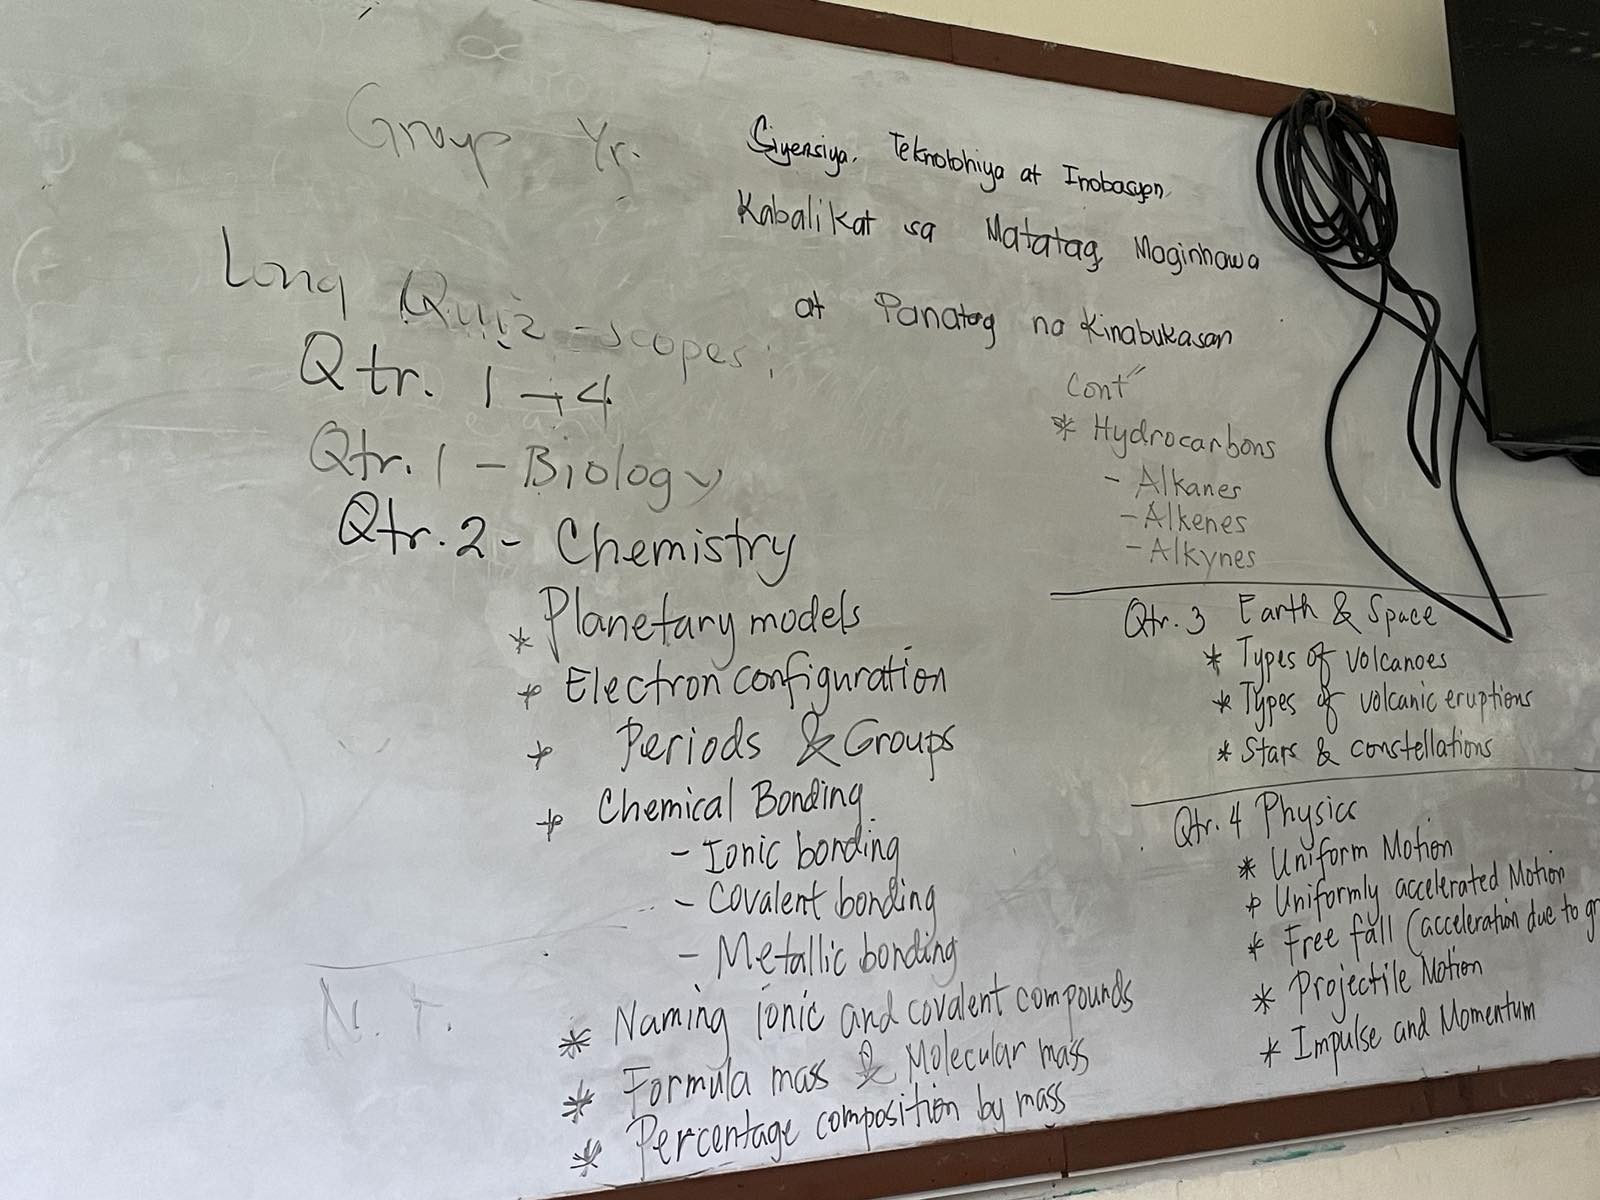 Group Yr.
Siyensiya, Teknolohiya at Inobasyon,
Kabalikat sa Matatag, Maginhawa
at Panatag na Kinabukasan
Long Quiz - scopes:
Qtr. 1 → 4
Qtr. 1 - Biology
Qtr. 2 - Chemistry
* Planetary models
* Electron configuration
* Periods & Groups
* Chemical Bonding
- Ionic bonding
- Covalent bonding
- Metallic bonding
* Naming ionic and covalent compounds
* Formula mass & Molecular mass
* Percentage composition by mass
Cont"
* Hydrocarbons
- Alkanes
- Alkenes
- Alkynes
Qtr. 3 Earth & Space
* Types of volcanoes
* Types of volcanic eruptions
* Stars & constellations
Qtr. 4 Physics
* Uniform Motion
* Uniformly accelerated Motion
* Free fall (acceleration due to gr
* Projectile Motion
* Impulse and Momentum